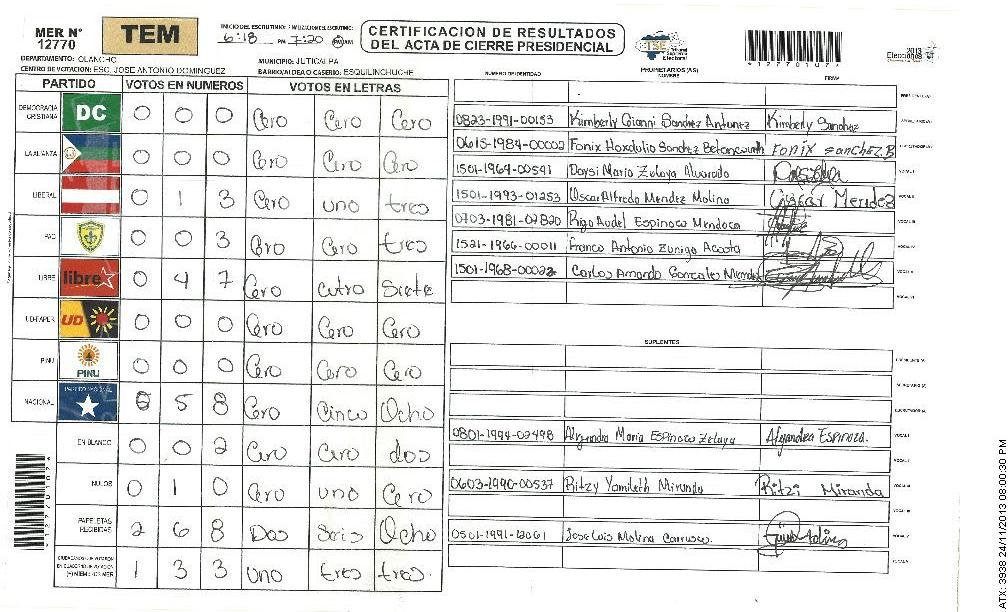 MER N° 12770
TEM
INICIO DEL ESCRUTINIO: FINALIZACION DEL ESCRUTINIO:
6:18 PM 7:20
CERTIFICACION DE RESULTADOS
DEL ACTA DE CIERRE PRESIDENCIAL
TSE Tribunal Supremo Electoral
1277010?4
2013
Elecciones
DEPARTAMENTO: OLANCHO
MUNICIPIO: JUTICALPA
CENTRO DE VOTACION: ESC. JOSE ANTONIO DOMINGUEZ
BARRIO/ALDEA O CASERIO: ESQUILINCHUCHE
PARTIDO VOTOS EN NUMEROS VOTOS EN LETRAS
NUMERO DE IDENTIDAD PROPIETARIOS (AS) NOMBRE FIRMA
DEMOCRACIA CRISTIANA DC 0 0 0 Cero Cero Cero
LA ALIANZA 0 0 0 Cero Cero Cero
LIBERAL 0 1 3 Cero uno tres
PAC 0 0 3 Cero Cero tres
LIBRE libre 0 4 7 Cero cutro Siete
UD-FAPER UD 0 0 0 Cero Cero Cero
PINU PINU 0 0 0 Cero Cero Cero
NACIONAL PARTIDO NACIONAL 0 5 8 Cero Cinco Ocho
EN BLANCO 0 0 2 Cero Cero dos
NULOS 0 1 0 Cero uno Cero
PAPELETAS RECIBIDAS 2 6 8 Dos Seis Ocho
1 3 3 uno tres tres.
0823-1991-00153 Kimberly Gianni Sandez Antunez Kimberly Sandez
0615-1984-00002 Fonix Hoxdulio Sandez Betancourth Fonix sanchez.B
1501-1964-00541 Daysi Maria Zelaya Alvarado
1501-1993-01253 Oscar Alfredo Mendez Molina Oscar Mendez
0703-1981-07820 Rigo Audel Espinoza Mendoca
1521-1966-00011 Franco Antonio Zuniga Acosta
1501-1968-00022 Carlos Amando Gonzales Mendez
SUPLENTES
0801-1994-02498 Alejandra Maria Espinoza Zelaya Alejandra Espinoza.
0603-1990-00537 Ritzy Yamileth Miranda Ritzi Miranda
0501-1991-12061 Jose Luis Molina Carrasco.
ATX: 3938 24/11/2013 08:00:30 PM